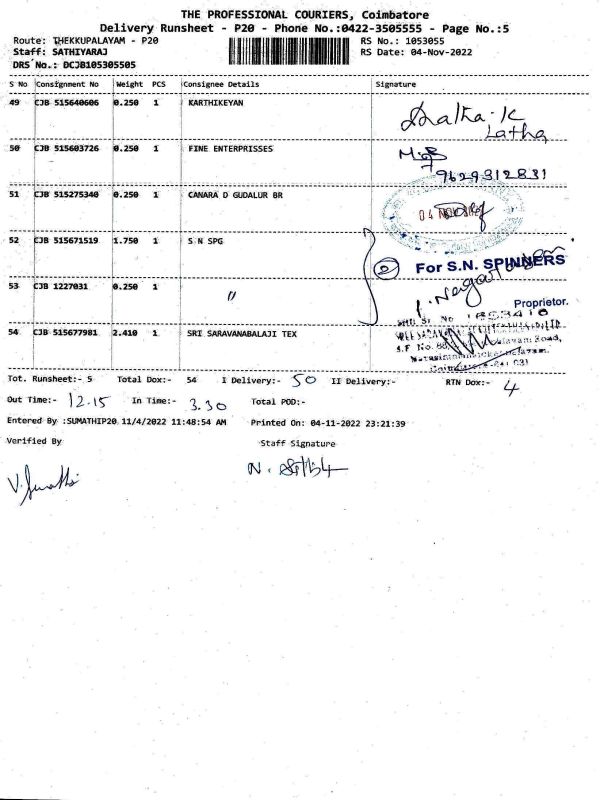 THE PROFESSIONAL COURIERS, Coimbatore
Delivery Runsheet - P20 - Phone No.:0422-3505555 - Page No.:5
Route: THEKKUPALAYAM - P20 RS No.: 1053055
Staff: SATHIYARAJ RS Date: 04-Nov-2022
DRS No.: DCJB105305505
S No Consignment No Weight PCS Consignee Details Signature
49 CJB 515640606 0.250 1 KARTHIKEYAN
Latha
50 CJB 515603726 0.250 1 FINE ENTERPRISSES
9629312831
51 CJB 515275340 0.250 1 CANARA D GUDALUR BR
04 NOV
52 CJB 515671519 1.750 1 S N SPG
2 For S.N. SPINNERS
53 CJB 1227031 0.250 1 "
Proprietor.
54 CJB 515677981 2.410 1 SRI SARAVANABALAJI TEX
Tot. Runsheet:- 5 Total Dox:- 54 I Delivery:- 50 II Delivery:- RTN Dox:- 4
Out Time:- 12.15 In Time:- 3.30 Total POD:-
Entered By :SUMATHIP20 11/4/2022 11:48:54 AM Printed On: 04-11-2022 23:21:39
Verified By Staff Signature
V. Sumathi